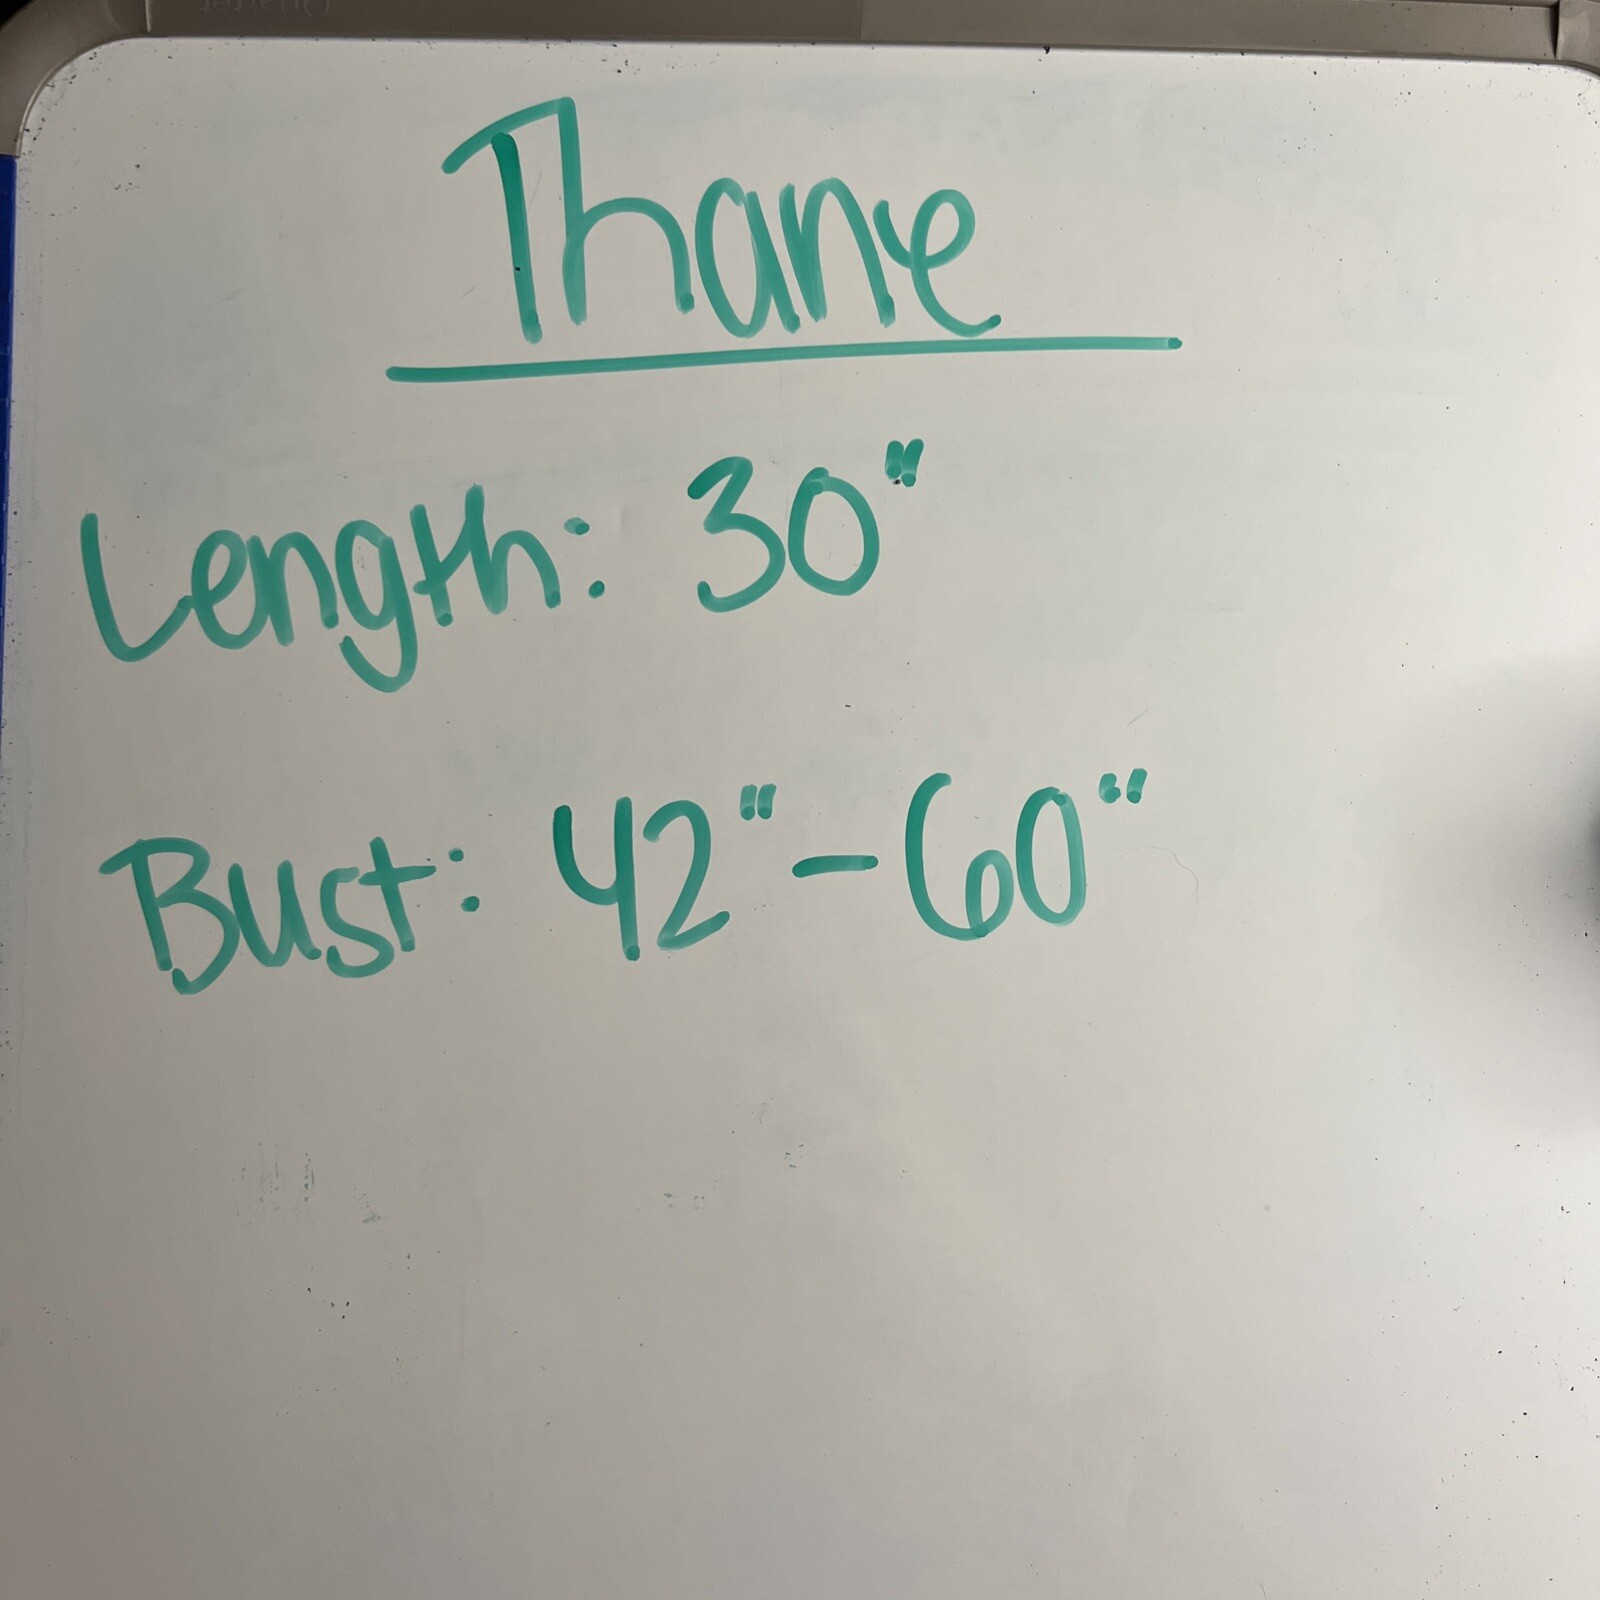 Thane
Length: 30"
Bust: 42"-60"